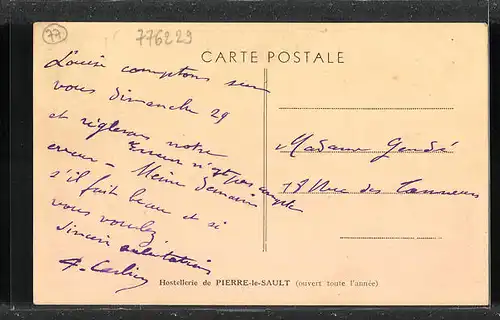 77
776229
CARTE POSTALE
Louise comptons sur
vous dimanche 29
et réglerons notre
erreur – Erreur n'est pas compte
Même demain
s'il fait beau et si
vous voulez
Sincères salutations
Madame Gendé
18 Rue des Tanneurs
Hostellerie de PIERRE-le-SAULT (ouvert toute l'année)